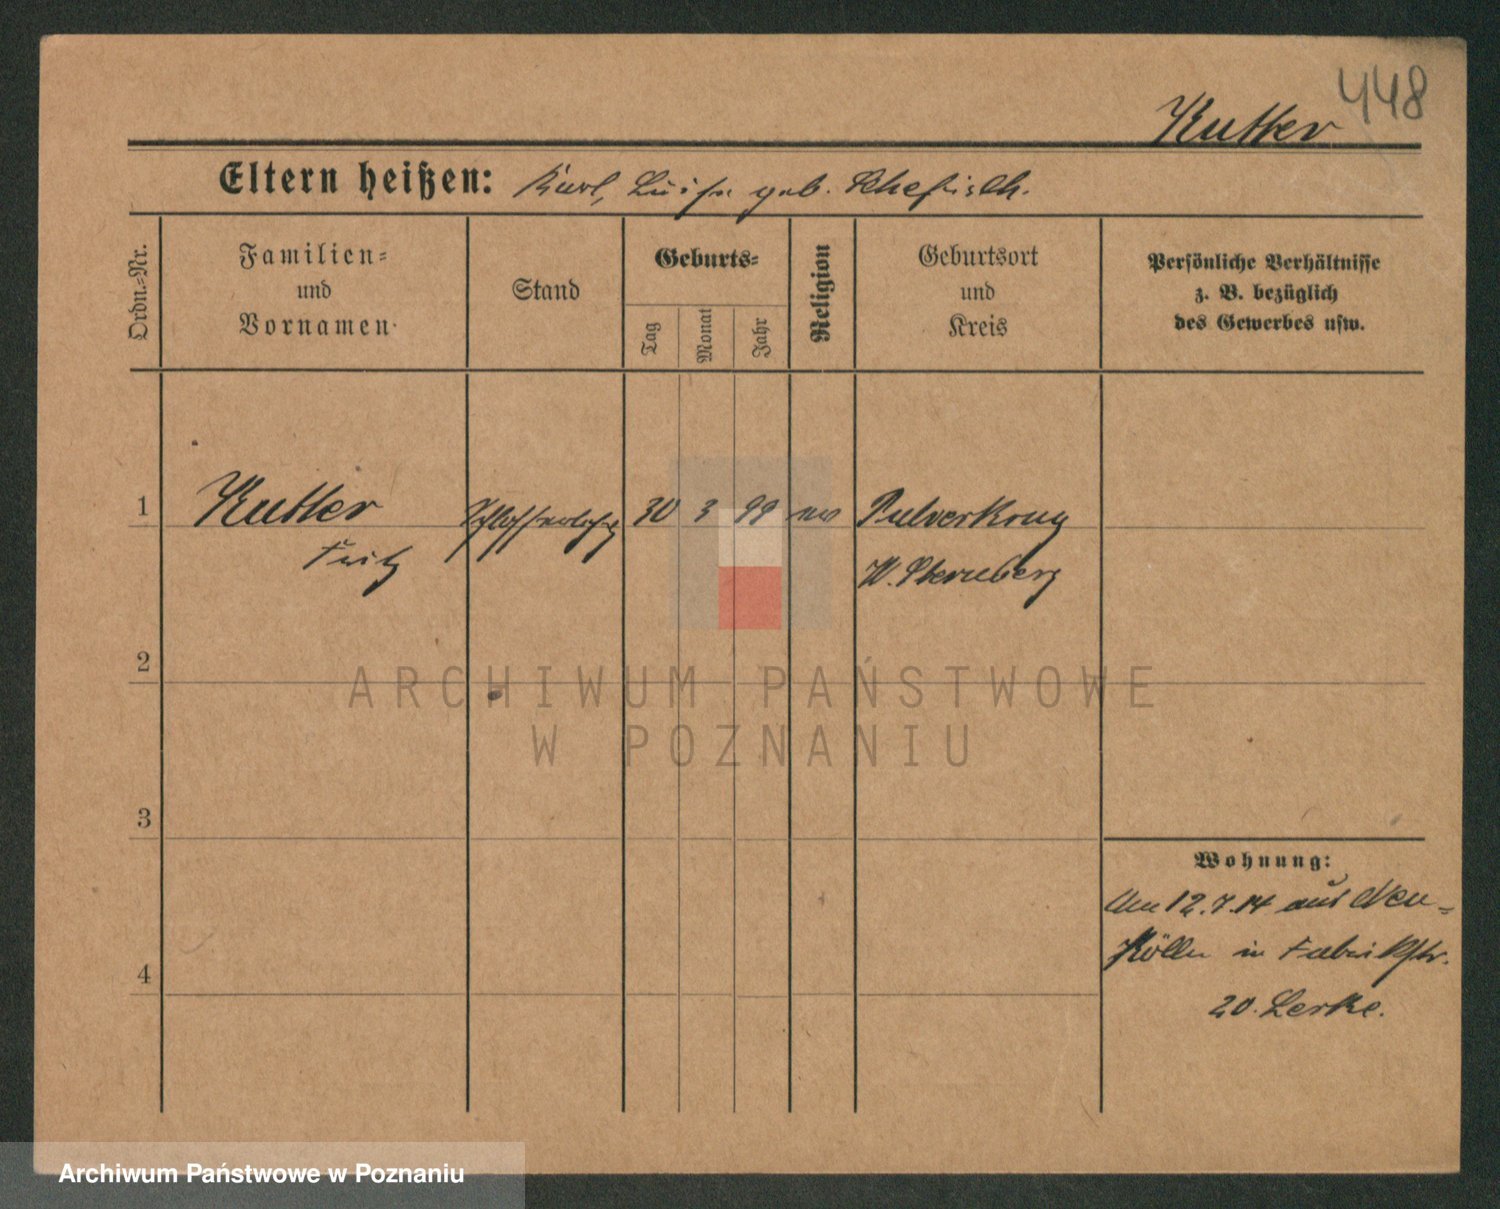 448
Kutter
Eltern heißen: Karl, Luise geb.
Ordn.-Nr.
Familien-
und
Vornamen
Stand
Geburts-
Tag
Monat
Jahr
Religion
Geburtsort
und
Kreis
Persönliche Verhältnisse
z. B. bezüglich
des Gewerbes usw.
1 Kutter Schlosserlehrlg 30 3 99 ev Pulverkrug
Fritz W. Sternberg
2
ARCHIWUM PAŃSTWOWE
W POZNANIU
3
Wohnung:
Am 12.7.14 aus Neu-
Kölln in Fabrikstr.
4
20.
Archiwum Państwowe w Poznaniu